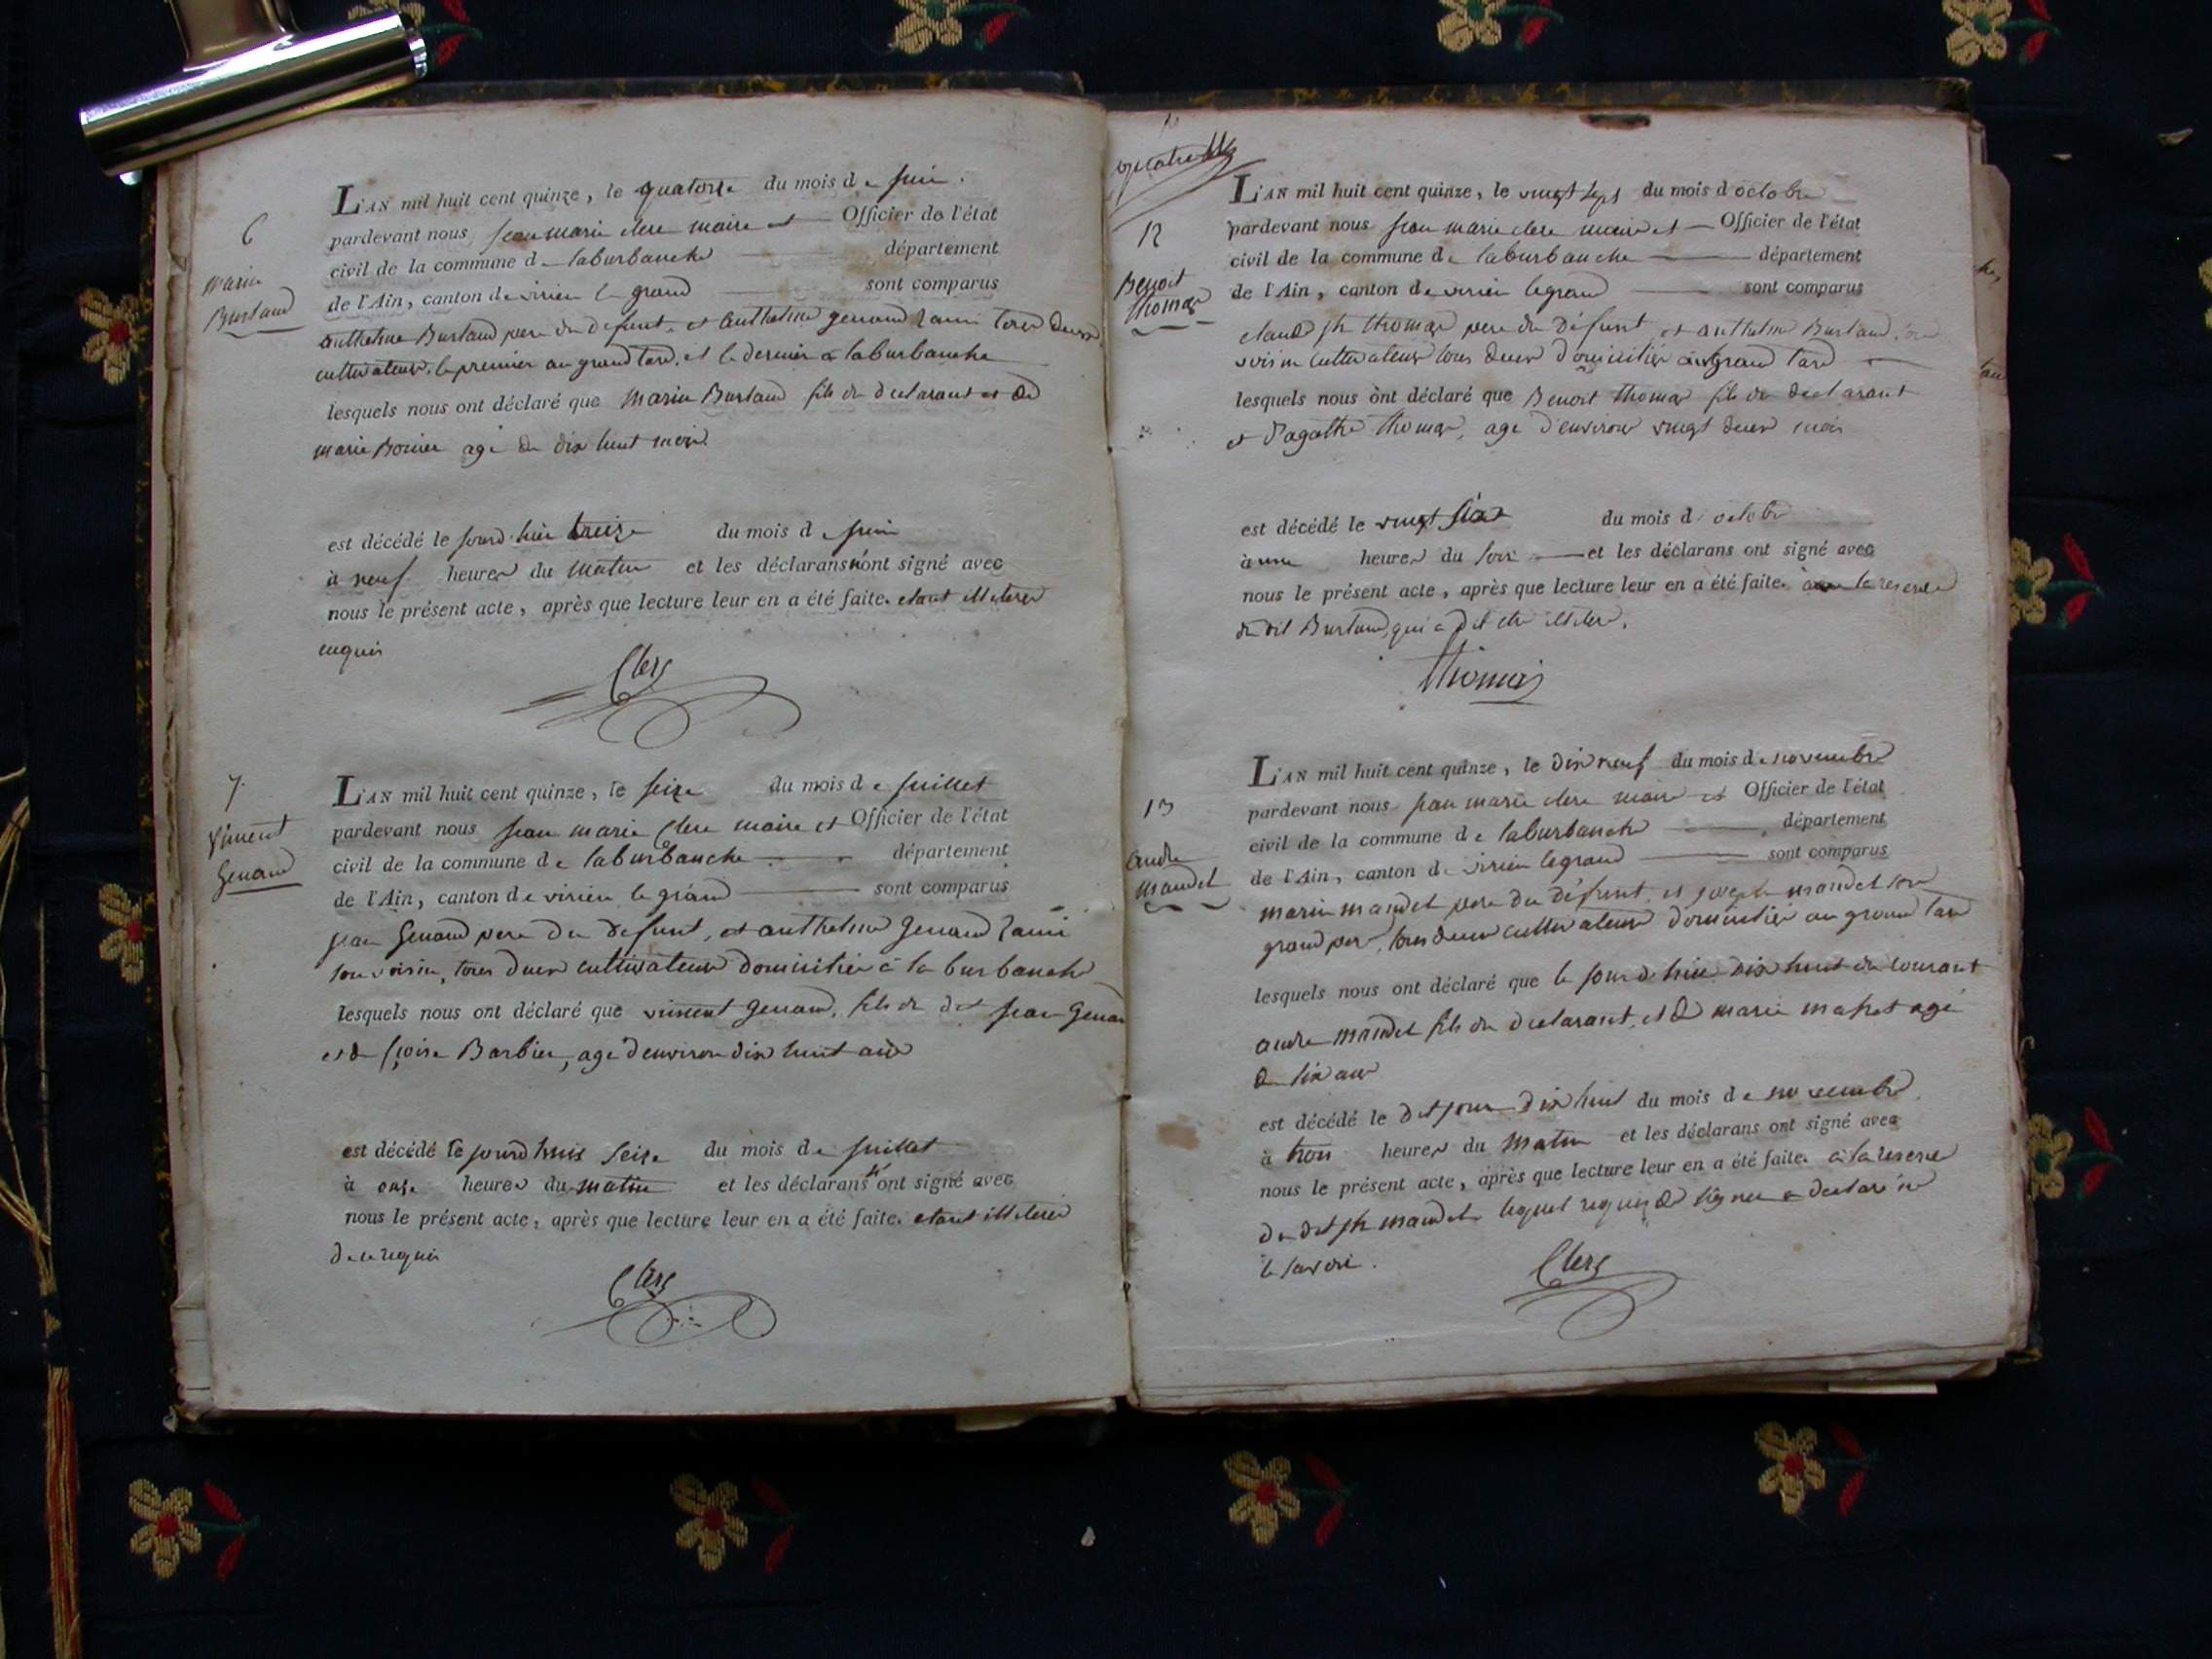 6
marin
Burtaud
L'AN mil huit cent quinze, le quatorze du mois de juin.
pardevant nous jean marie clerc maire et Officier de l'état
civil de la commune de laburbanche département
de l'Ain, canton de virieu le grand sont comparus
anthelme Burtaud pere du defunt, et anthelme genaud tous deux
cultivateurs, le premier au grand tard, et le dernier a laburbanche
lesquels nous ont déclaré que marin Burtaud fils du declarant et de
marie Borrier agé de dix huit mois
est décédé le jourd'hier treize du mois de juin
à neuf heures du matin et les déclarans n'ont signé avec
nous le présent acte, après que lecture leur en a été faite. etant illiteres
enquis
Clerc
7
vincent
Genaud
L'AN mil huit cent quinze, le seize du mois de juillet
pardevant nous jean marie Clerc maire et Officier de l'état
civil de la commune de laburbanche département
de l'Ain, canton de virieu le grand sont comparus
jean Genaud pere du defunt, et anthelme Genaud
son voisin, tous deux cultivateurs domiciliés à la burbanche
lesquels nous ont déclaré que vincent genaud, fils du dit jean Genaud
et de fçoise Barbier, agé d'environ dix huit ans
est décédé le jourd'huis seize du mois de juillet
à onze heures du matin et les déclarans n'ont signé avec
nous le présent acte, après que lecture leur en a été faite. etant illiteres
de ce requis
Clerc
12
Benoit
thomas
L'AN mil huit cent quinze, le vingt sept du mois d'octobre
pardevant nous jean marie clerc maire et Officier de l'état
civil de la commune de laburbanche département
de l'Ain, canton de virieu legrand sont comparus
claude jh thomas pere du defunt, et anthelme Burtaud, son
voisin cultivateurs tous deux domiciliés au grand tard
lesquels nous ont déclaré que Benoit thomas fils du declarant
et d'agathe thomas, agé d'environ vingt deux mois
est décédé le vingt six du mois d'octobre
à une heures du soir et les déclarans ont signé avec
nous le présent acte, après que lecture leur en a été faite. a la reserve
du dit Burtaud, qui a dit etre illitere.
thomas
13
andre
mandet
L'AN mil huit cent quinze, le dix neuf du mois de novembre
pardevant nous jean marie clerc maire et Officier de l'état
civil de la commune de laburbanche département
de l'Ain, canton de virieu legrand sont comparus
marin mandet pere du défunt, et joseph mandet son
grand pere, tous deux cultivateurs domiciliés au grand tard
lesquels nous ont déclaré que le jour d'hier dix huit du courant
andre mandet fils du declarant, et de marie agé
de six ans
est décédé le dit jour dix huit du mois de novembre
à trois heures du matin et les déclarans ont signé avec
nous le présent acte, après que lecture leur en a été faite. à la reserve
du dit jh mandet lequel requis de signer a declaré ne
le savoir.
Clerc